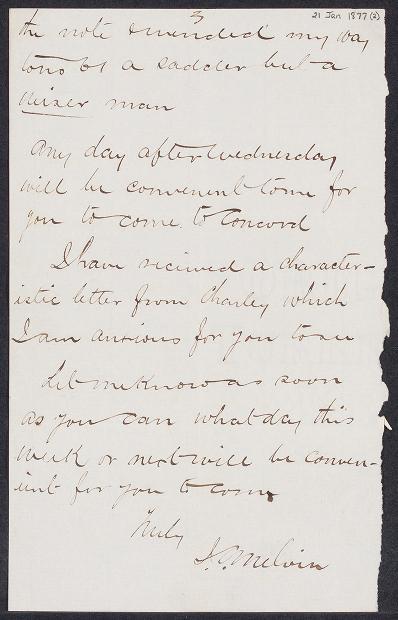 3
21 Jan 1877 (2)
the note & mended my way
to 61 a sadder but a
wiser man
Any day after Wednesday
will be convenent to me for
you to come to Concord
I have recieved a character-
istic letter from Charley which
I am anxious for you to see
Let me know as soon
as you can what day this
week or next will be conven-
ient for you to come
Truly
J. C. Melvin